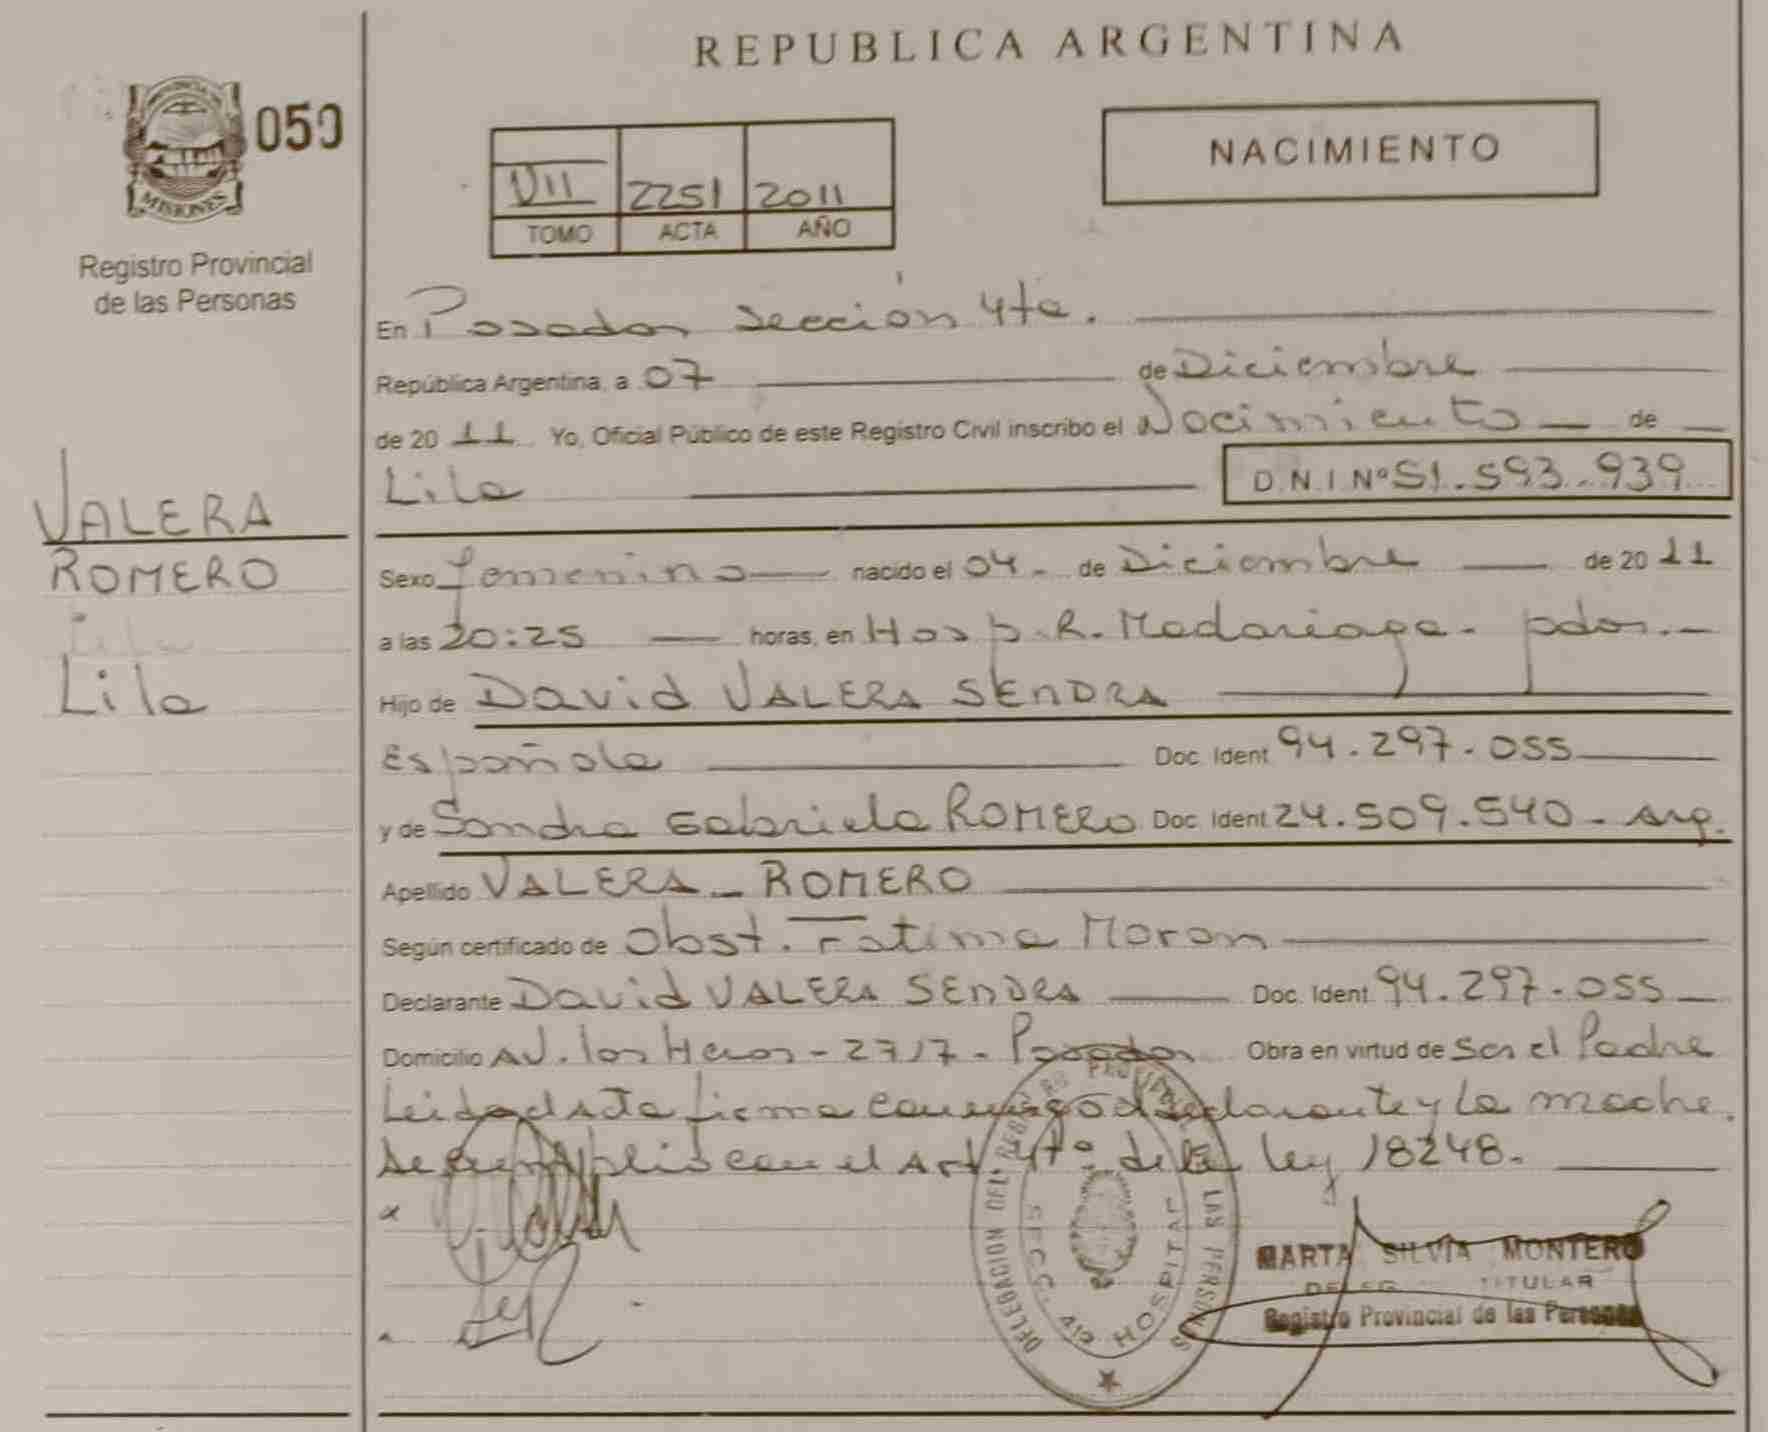 REPUBLICA ARGENTINA
MISIONES
059
Registro Provincial
de las Personas
VII 2251 2011
TOMO ACTA AÑO
NACIMIENTO
En Posadas sección 4ta.
República Argentina, a 07 de Diciembre
de 2011 Yo, Oficial Público de este Registro Civil inscribo el Nacimiento de
Lila D.N.I Nº 51.593.939
VALERA
ROMERO
Lila
Lila
Sexo femenino nacido el 04 de Diciembre de 2011
a las 20:25 horas, en Hosp. R. Madariaga - pdas.
Hijo de David VALERA SENDRA
Española Doc. Ident 94.297.055
y de Sandra Gabriela ROMERO Doc. Ident 24.509.540 - arg.
Apellido VALERA - ROMERO
Según certificado de Obst. Fatima Moron
Declarante David VALERA SENDRA Doc. Ident 94.297.055
Domicilio AV. los - Posadas Obra en virtud de ser el Padre
Leida el acta firma conmigo el declarante y la madre.
se cumplió con el Art. 4tº de la ley 18248.
DELEGACION DEL REGISTRO PROVINCIAL DE LAS PERSONAS
SECC. 4ta HOSPITAL
MARTA SILVIA MONTERO
DELEG. TITULAR
Registro Provincial de las Personas